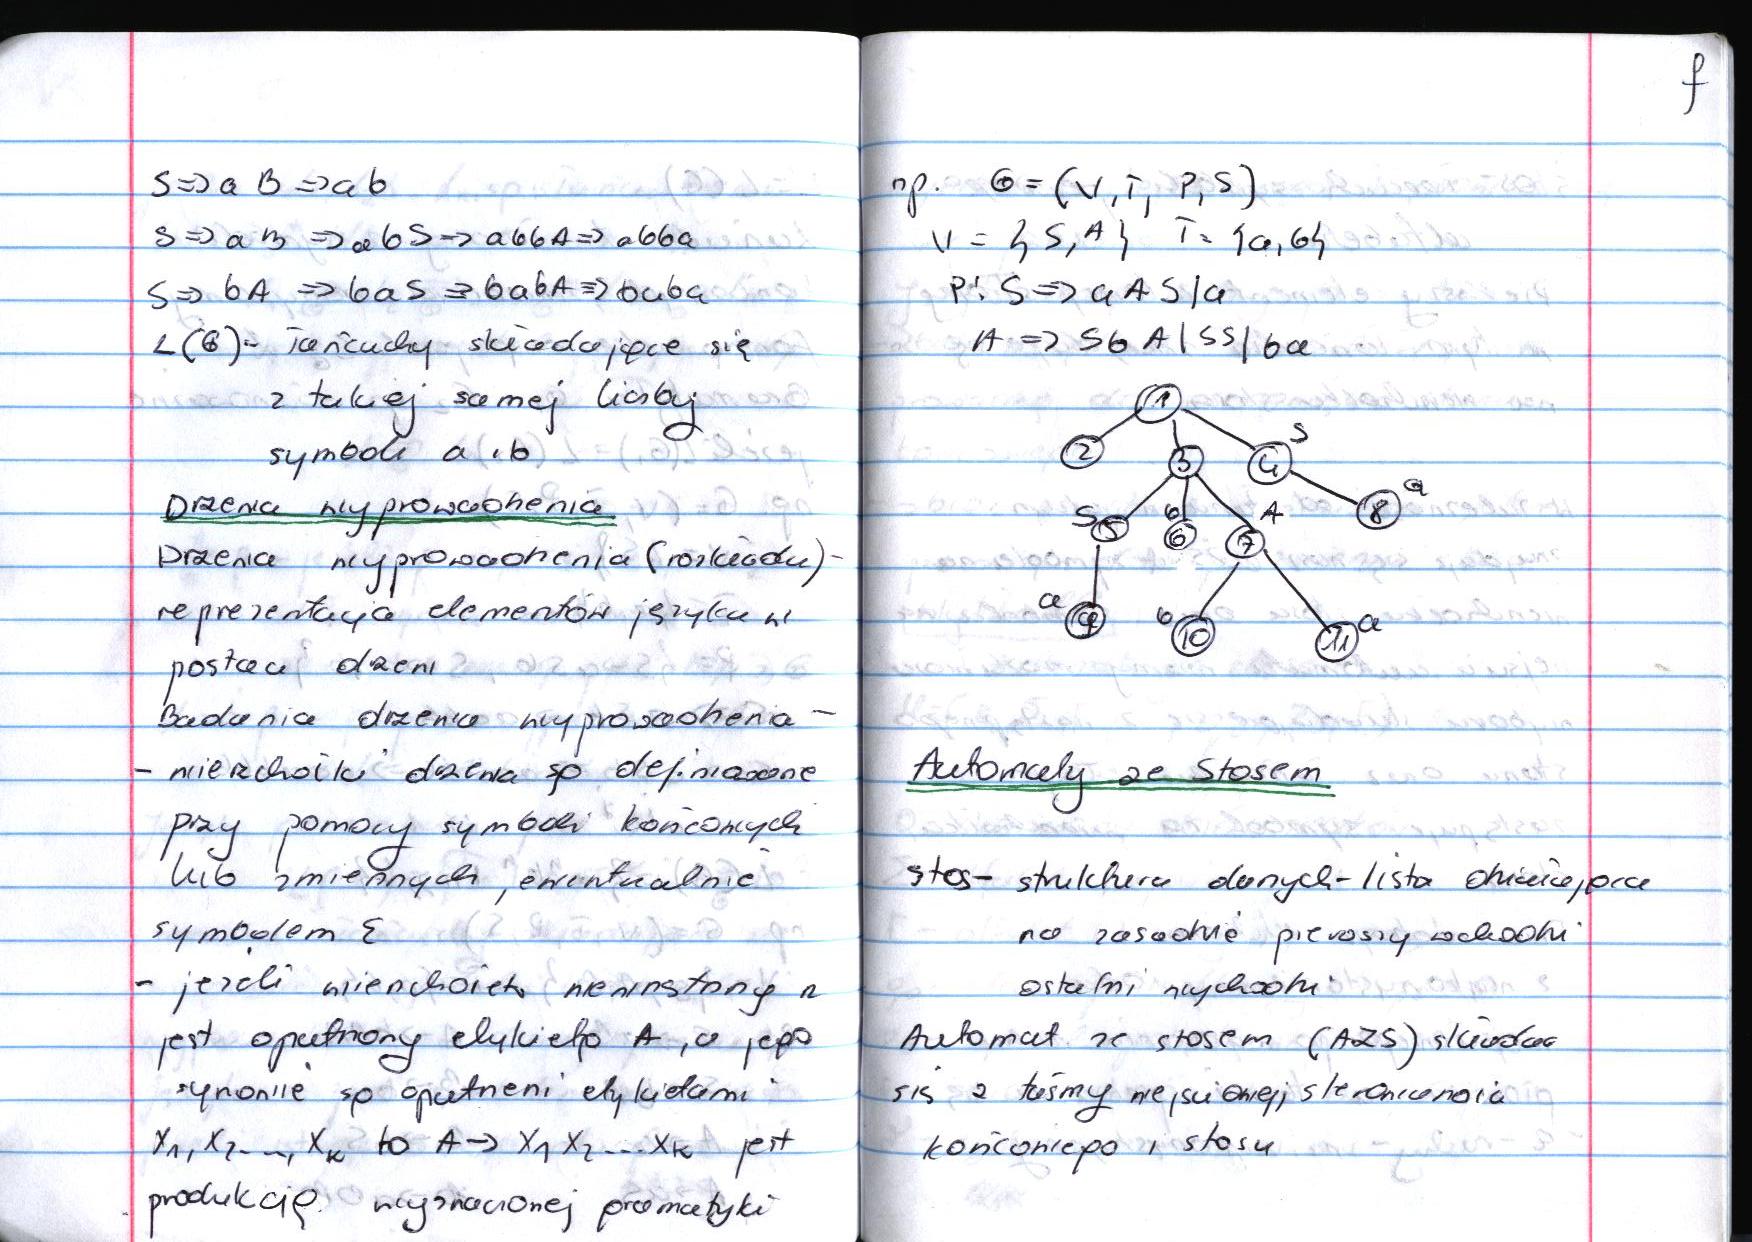 S => a B => ab
S => a B => abS => abbA => abba
S => bA => baS => babA => baba
L(G) - łańcuchy składające się
z takiej samej liczby
symboli a i b
Drzewa wyprowadzenia
Drzewa wyprowadzenia (rozkładu) -
reprezentacja elementów języka w
postaci drzew
Badania drzewa wyprowadzenia -
- wierzchołki drzewa są definiowane
przy pomocy symboli końcowych
lub zmiennych, ewentualnie
symbolem ε
- jeżeli wierzchołek wewnętrzny n
jest opatrzony etykietą A, a jego
synowie są opatrzeni etykietami
X1, X2..., Xk to A -> X1 X2 ... Xk jest
produkcją wyznaczonej gramatyki
f
np. G = (V, T, P, S)
V = {S, A} T = {a, b}
P: S => a A S / a
A => S b A | SS | ba
1
2 3 4 S
S 5 b 6 7 A 8 a
a 9 b 10 11 a
Automaty ze Stosem
stos - struktura danych - lista działająca
na zasadzie pierwszy wchodzi
ostatni wychodzi
Automat ze stosem (AZS) składa
się z taśmy wejściowej, sterowania
końcowego i stosu